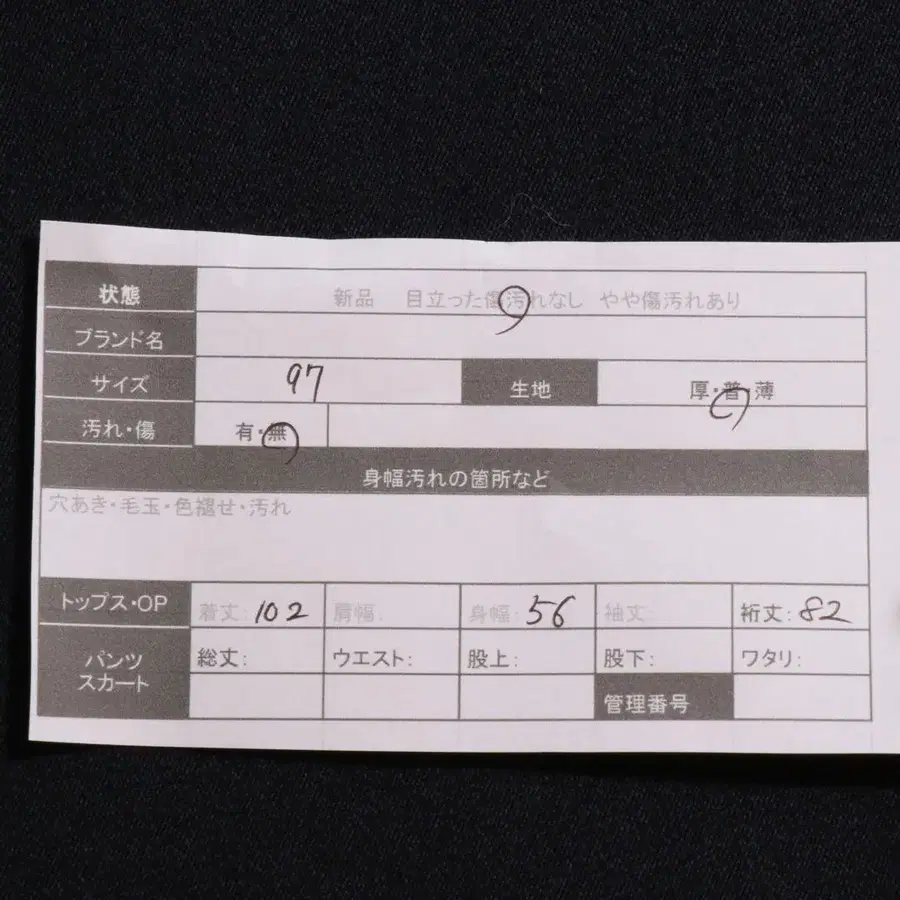 状態 新品 目立った傷汚れなし やや傷汚れあり
ブランド名
サイズ 97 生地 厚・普・薄
汚れ・傷 有・無
身幅汚れの箇所など
穴あき・毛玉・色褪せ・汚れ
トップス・OP 着丈: 102 肩幅: 身幅: 56 袖丈: 裄丈: 82
パンツ 総丈: ウエスト: 股上: 股下: ワタリ:
スカート
管理番号